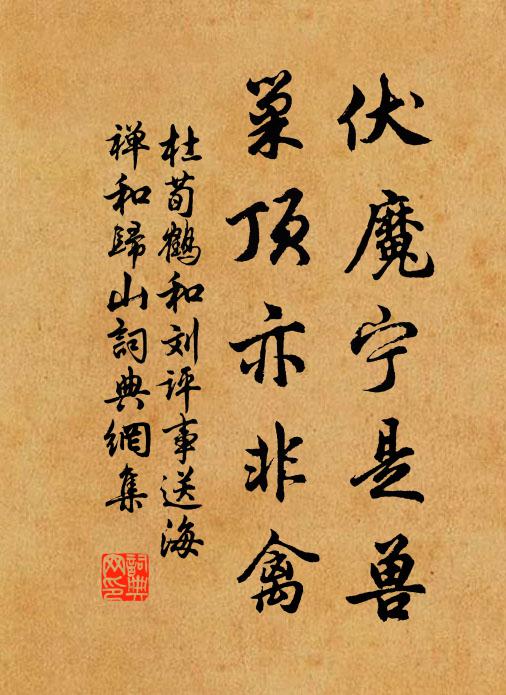 伏魔宁是兽
巢顶亦非禽
杜荀鹤和刘评事送海
禅和歸山詞典網集
詞典
网印